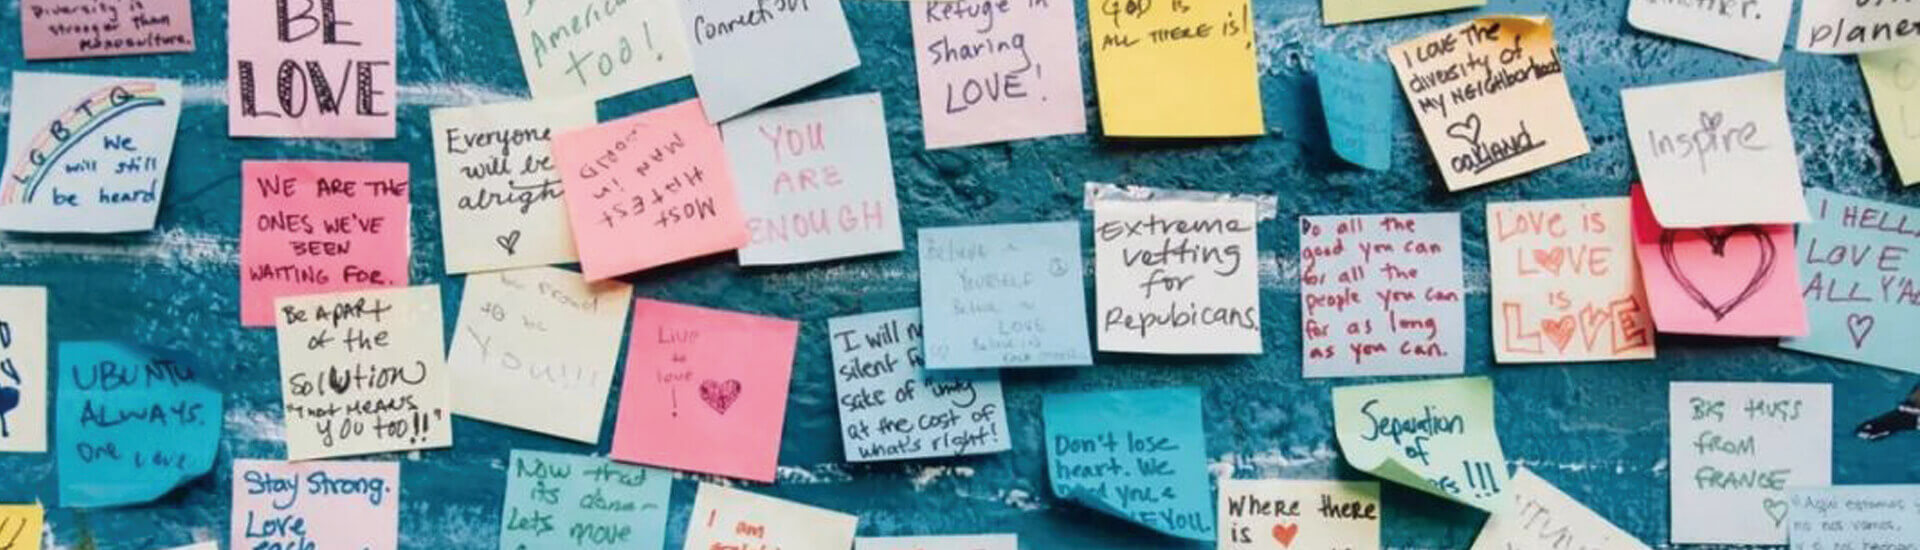 Diversity is
stronger than
monoculture.
BE
LOVE
America
too!
Connection
Refuge in
Sharing
LOVE!
GOD IS
ALL THERE IS!
I LOVE The
diversity of
MY NEIGHborhood
OAKLAND
planet
LGBTQ
We
will still
be heard
WE ARE THE
ONES WE'VE
BEEN
WAITING FOR.
Everyone
will be
alright
MOST
HATEST
MAN IN
YOU
ARE
ENOUGH
Inspire
Believe in
YOURSELF
Believe in
LOVE
Believe in
Extreme
vetting
for
Repubicans.
Do all the
good you can
for all the
people you can
for as long
as you can.
Love is
LOVE
is
LOVE
I HELL
LOVE
ALL Y'AL
UBUNTU
ALWAYS.
One Love
Be APArt
of the
SOLUTION
"That MEANS
you too!!"
be proud
to be
YOU!!!
Live
to
love
!
I will n
silent f
sake of "unity
at the cost of
what's right!
Don't lose
heart. We
need you &
LOVE YOU.
Separation
of
rs !!!
BIG HUGS
FROM
FRANCE
Stay Strong.
Love
each
Now that
its done-
Lets move
I am
Where there
is
"Aquí estamos y
no nos vamos,